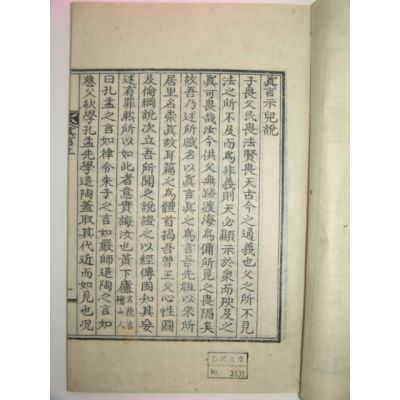 眞言示兒說
子畏父民畏法賢畏天古今之通義也父之所不見
法之所不及而爲非義則天必顯示於衆而殃及之
眞可畏哉汝今供父無路渡海爲傭所見之畏隔矣
故述所感名以眞言眞之爲言吾先祖以來所
居里名崇眞故耳篇之爲體首揭吾曾王父心性圖
及倫綱說次立吾所聞之說證之以經傳固知其妄
述有罪然所以如此者意實誨汝也黃下廬名德吉檜山人
曰孔孟之言如律令朱子之言如嚴師退陶之言如
慈父欲學孔孟先學退陶蓋取其代近而如見也况
眞言
No. 3431